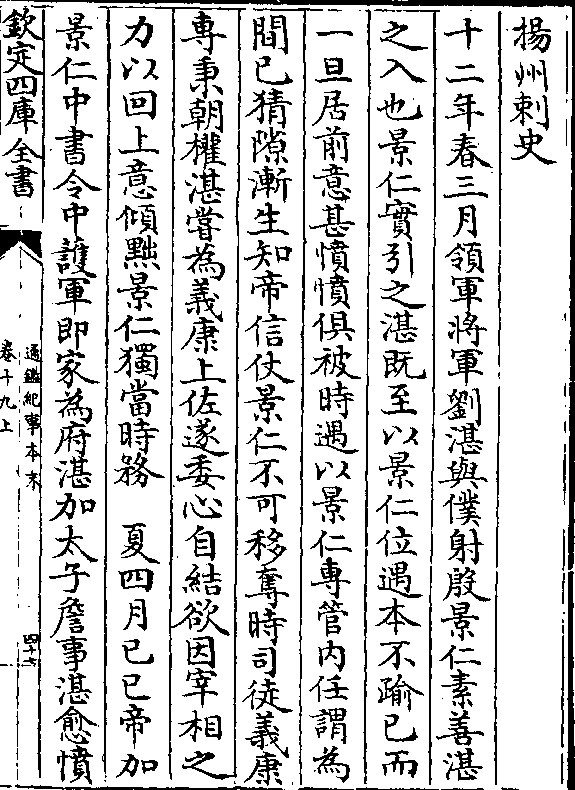 揚州刺史
十二年春三月領軍將軍劉湛與僕射殷景仁素善湛
之入也景仁實引之湛既至以景仁位遇本不踰已而
一旦居前意甚憤憤俱被時遇以景仁專管内任謂為
間已猜隙漸生知帝信仗景仁不可移奪時司徒義康
專秉朝權湛嘗為義康上佐遂委心自結欲因宰相之
力以回上意傾黜景仁獨當時務　夏四月已巳帝加
景仁中書令中護軍即家為府湛加太子詹事湛愈憤
欽定四庫全書
通鑑紀事本末
卷十九上
四十六